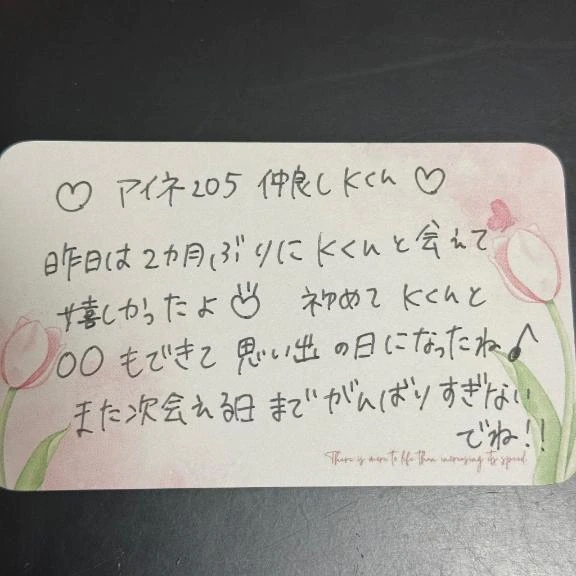 ♡ アイネ205 仲良しKくん ♡
昨日は2カ月ぶりにKくんと会えて
嬉しかったよ 初めてKくんと
〇〇もできて 思い出の日になったね♪
また次会える日までがんばりすぎない
でね!!
There is more to life than increasing its speed